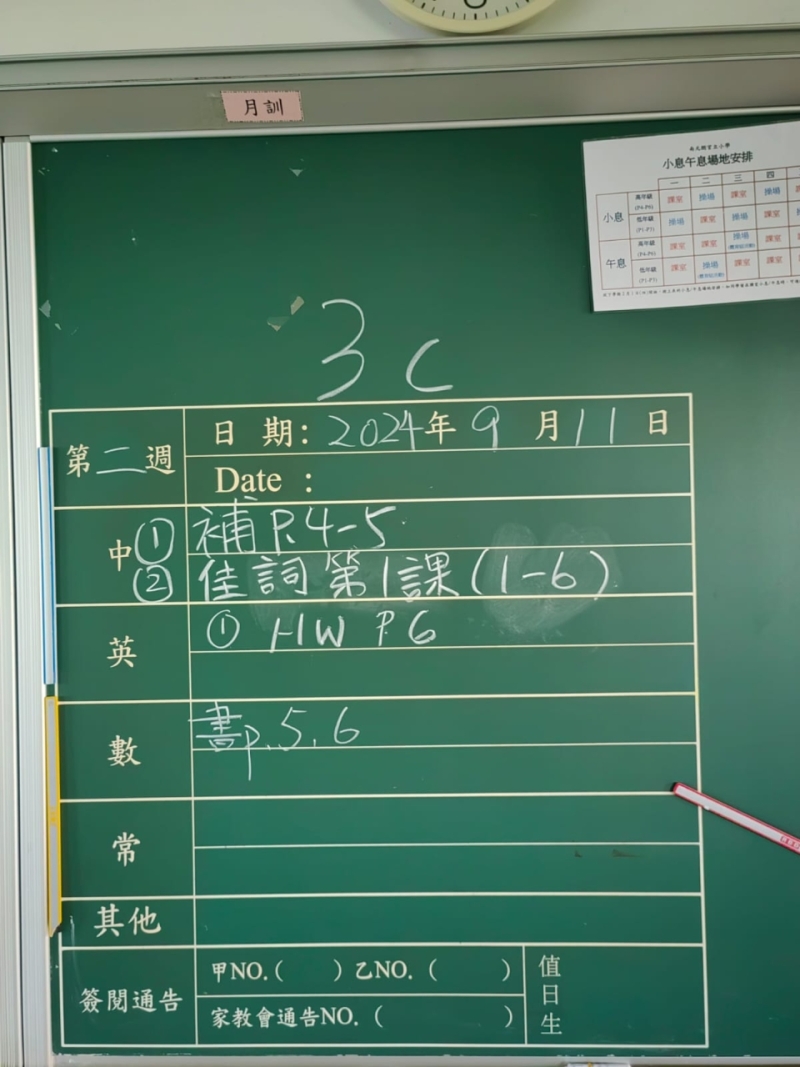 月訓
小息午息場地安排
一 二 三 四
小息 高年級 (P4-P6) 課室 操場 課室 操場
低年級 (P1-P3) 操場 課室 操場 課室
午息 高年級 (P4-P6) 課室 課室 操場 課室
低年級 (P1-P3) 課室 操場 課室 課室
3C
第二週 日期: 2024年9月11日
Date :
中 ① 補 P.4-5
② 佳詞第1課(1-6)
英 ① HW P6
數 書p.5,6
常
其他
簽閱通告 甲NO.( ) 乙NO.( ) 值日生
家教會通告NO.( )